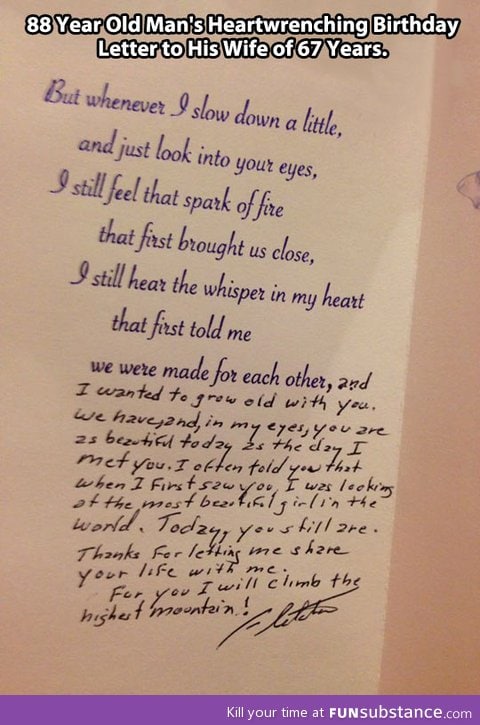 88 Year Old Man's Heartwrenching Birthday
Letter to His Wife of 67 Years.
But whenever I slow down a little,
and just look into your eyes,
I still feel that spark of fire
that first brought us close,
I still hear the whisper in my heart
that first told me
we were made for each other, and
I wanted to grow old with you.
We have, and, in my eyes, you are
as beautiful today as the day I
met you. I often told you that
when I first saw you, I was looking
at the most beautiful girl in the
world. Today, you still are.
Thanks for letting me share
your life with me.
For you I will climb the
highest mountain!
Kill your time at FUNsubstance.com